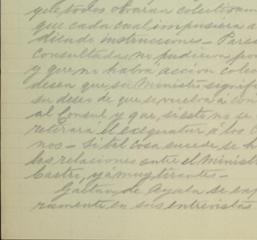 que todos obrarían colectivam
que cada cual impusiera a
diendo instrucciones - Parece
consultada, no pudieron por
y que no habrá acción colec
desea que su Ministro signifi
su deseo de que se vuelva a con
al Consul y que, si esto no se
retirará el exequatur a los Co
nos - Si tal cosa sucede, se h
las relaciones entre el Minist
Castro, ya muy tirantes -
Gaetan de Ayala se exp
ramente en sus entrevistas